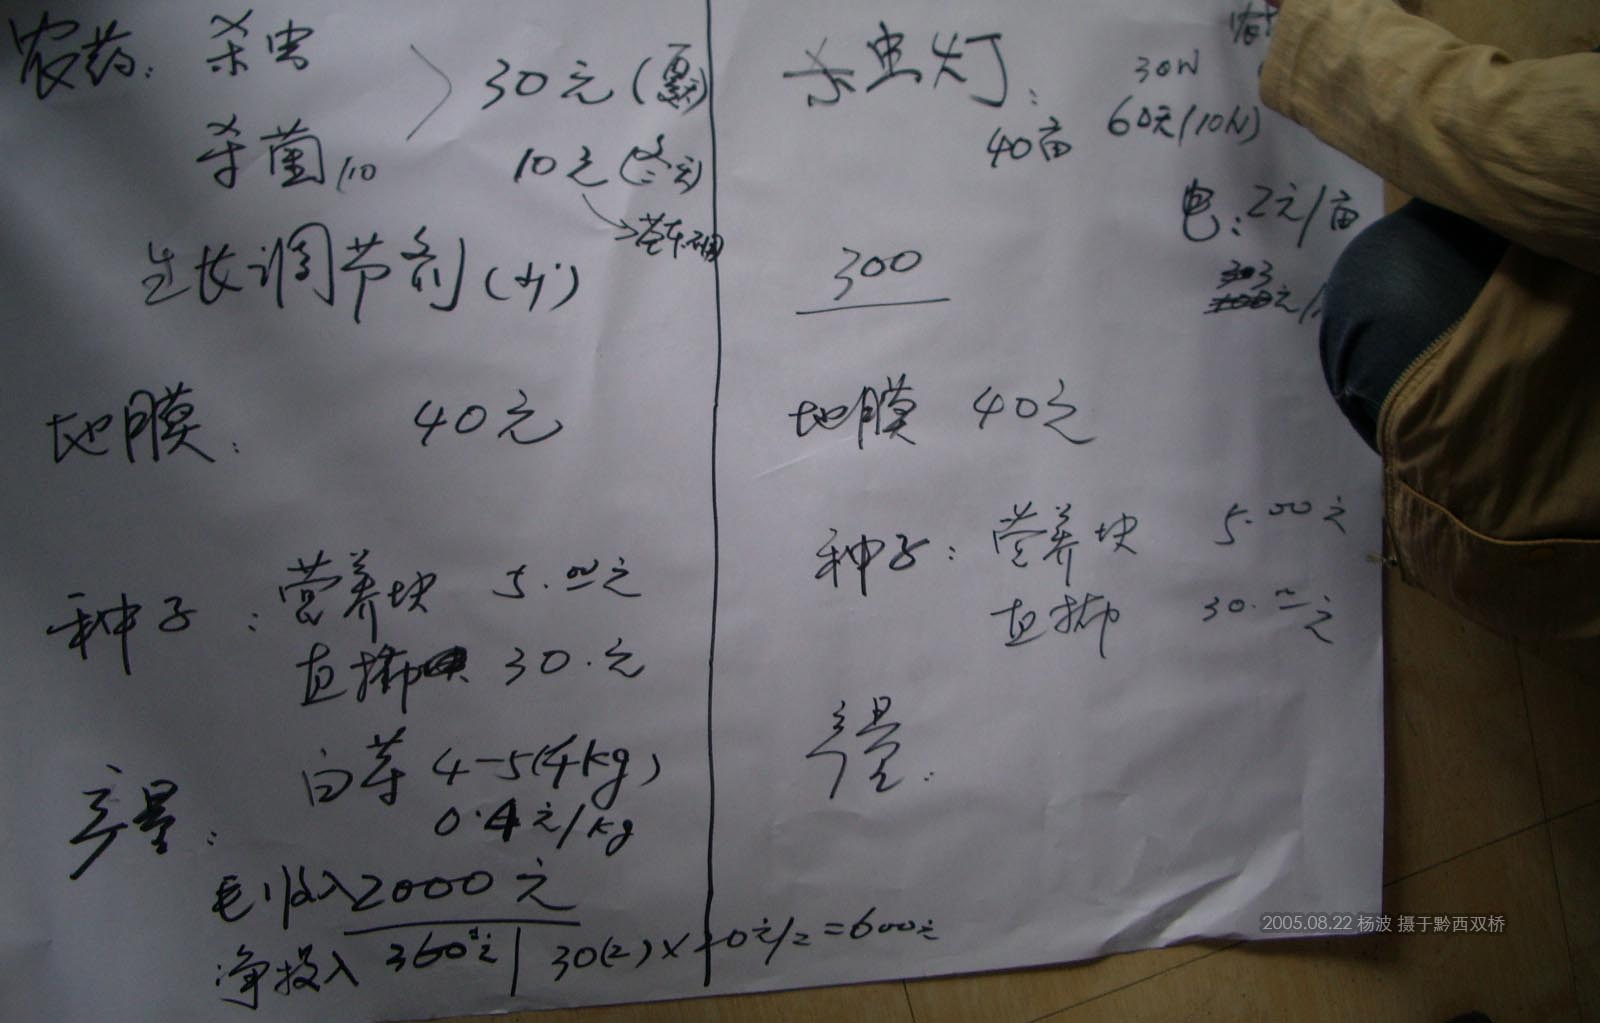 农药: 杀虫
30元(夏天)
杀菌/10
10元(冬天)
生长调节剂(少)
地膜: 40元
种子: 营养块 5.00元
直播 30.元
产量: 白芽 4-5(4kg)
0.4元/kg
毛收入2000元
净投入 360元 30(2)× 0元/ =600元
杀虫灯:
40亩
30W
60元(10W)
电: 2元/亩
300
地膜 40元
种子: 营养块 5.00元
直播 30.00元
产量:
2005.08.22 杨波 摄于黔西双桥